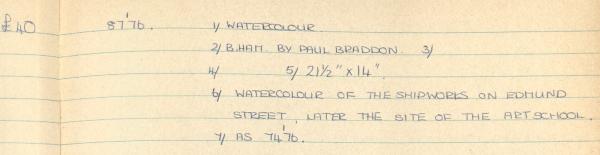 £40 87'76. 1/ WATERCOLOUR.
2/ B.HAM. BY PAUL BRADDON. 3/
4/ 5/ 21½" x 14".
6/ WATERCOLOUR OF THE SHIPWORKS ON EDMUND
STREET, LATER THE SITE OF THE ART SCHOOL.
7/ AS 74'76.